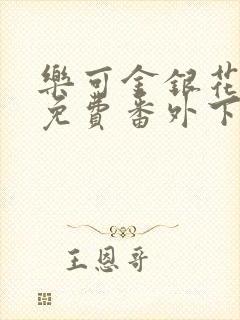 樂可金銀花
免費番外下
王恩哥